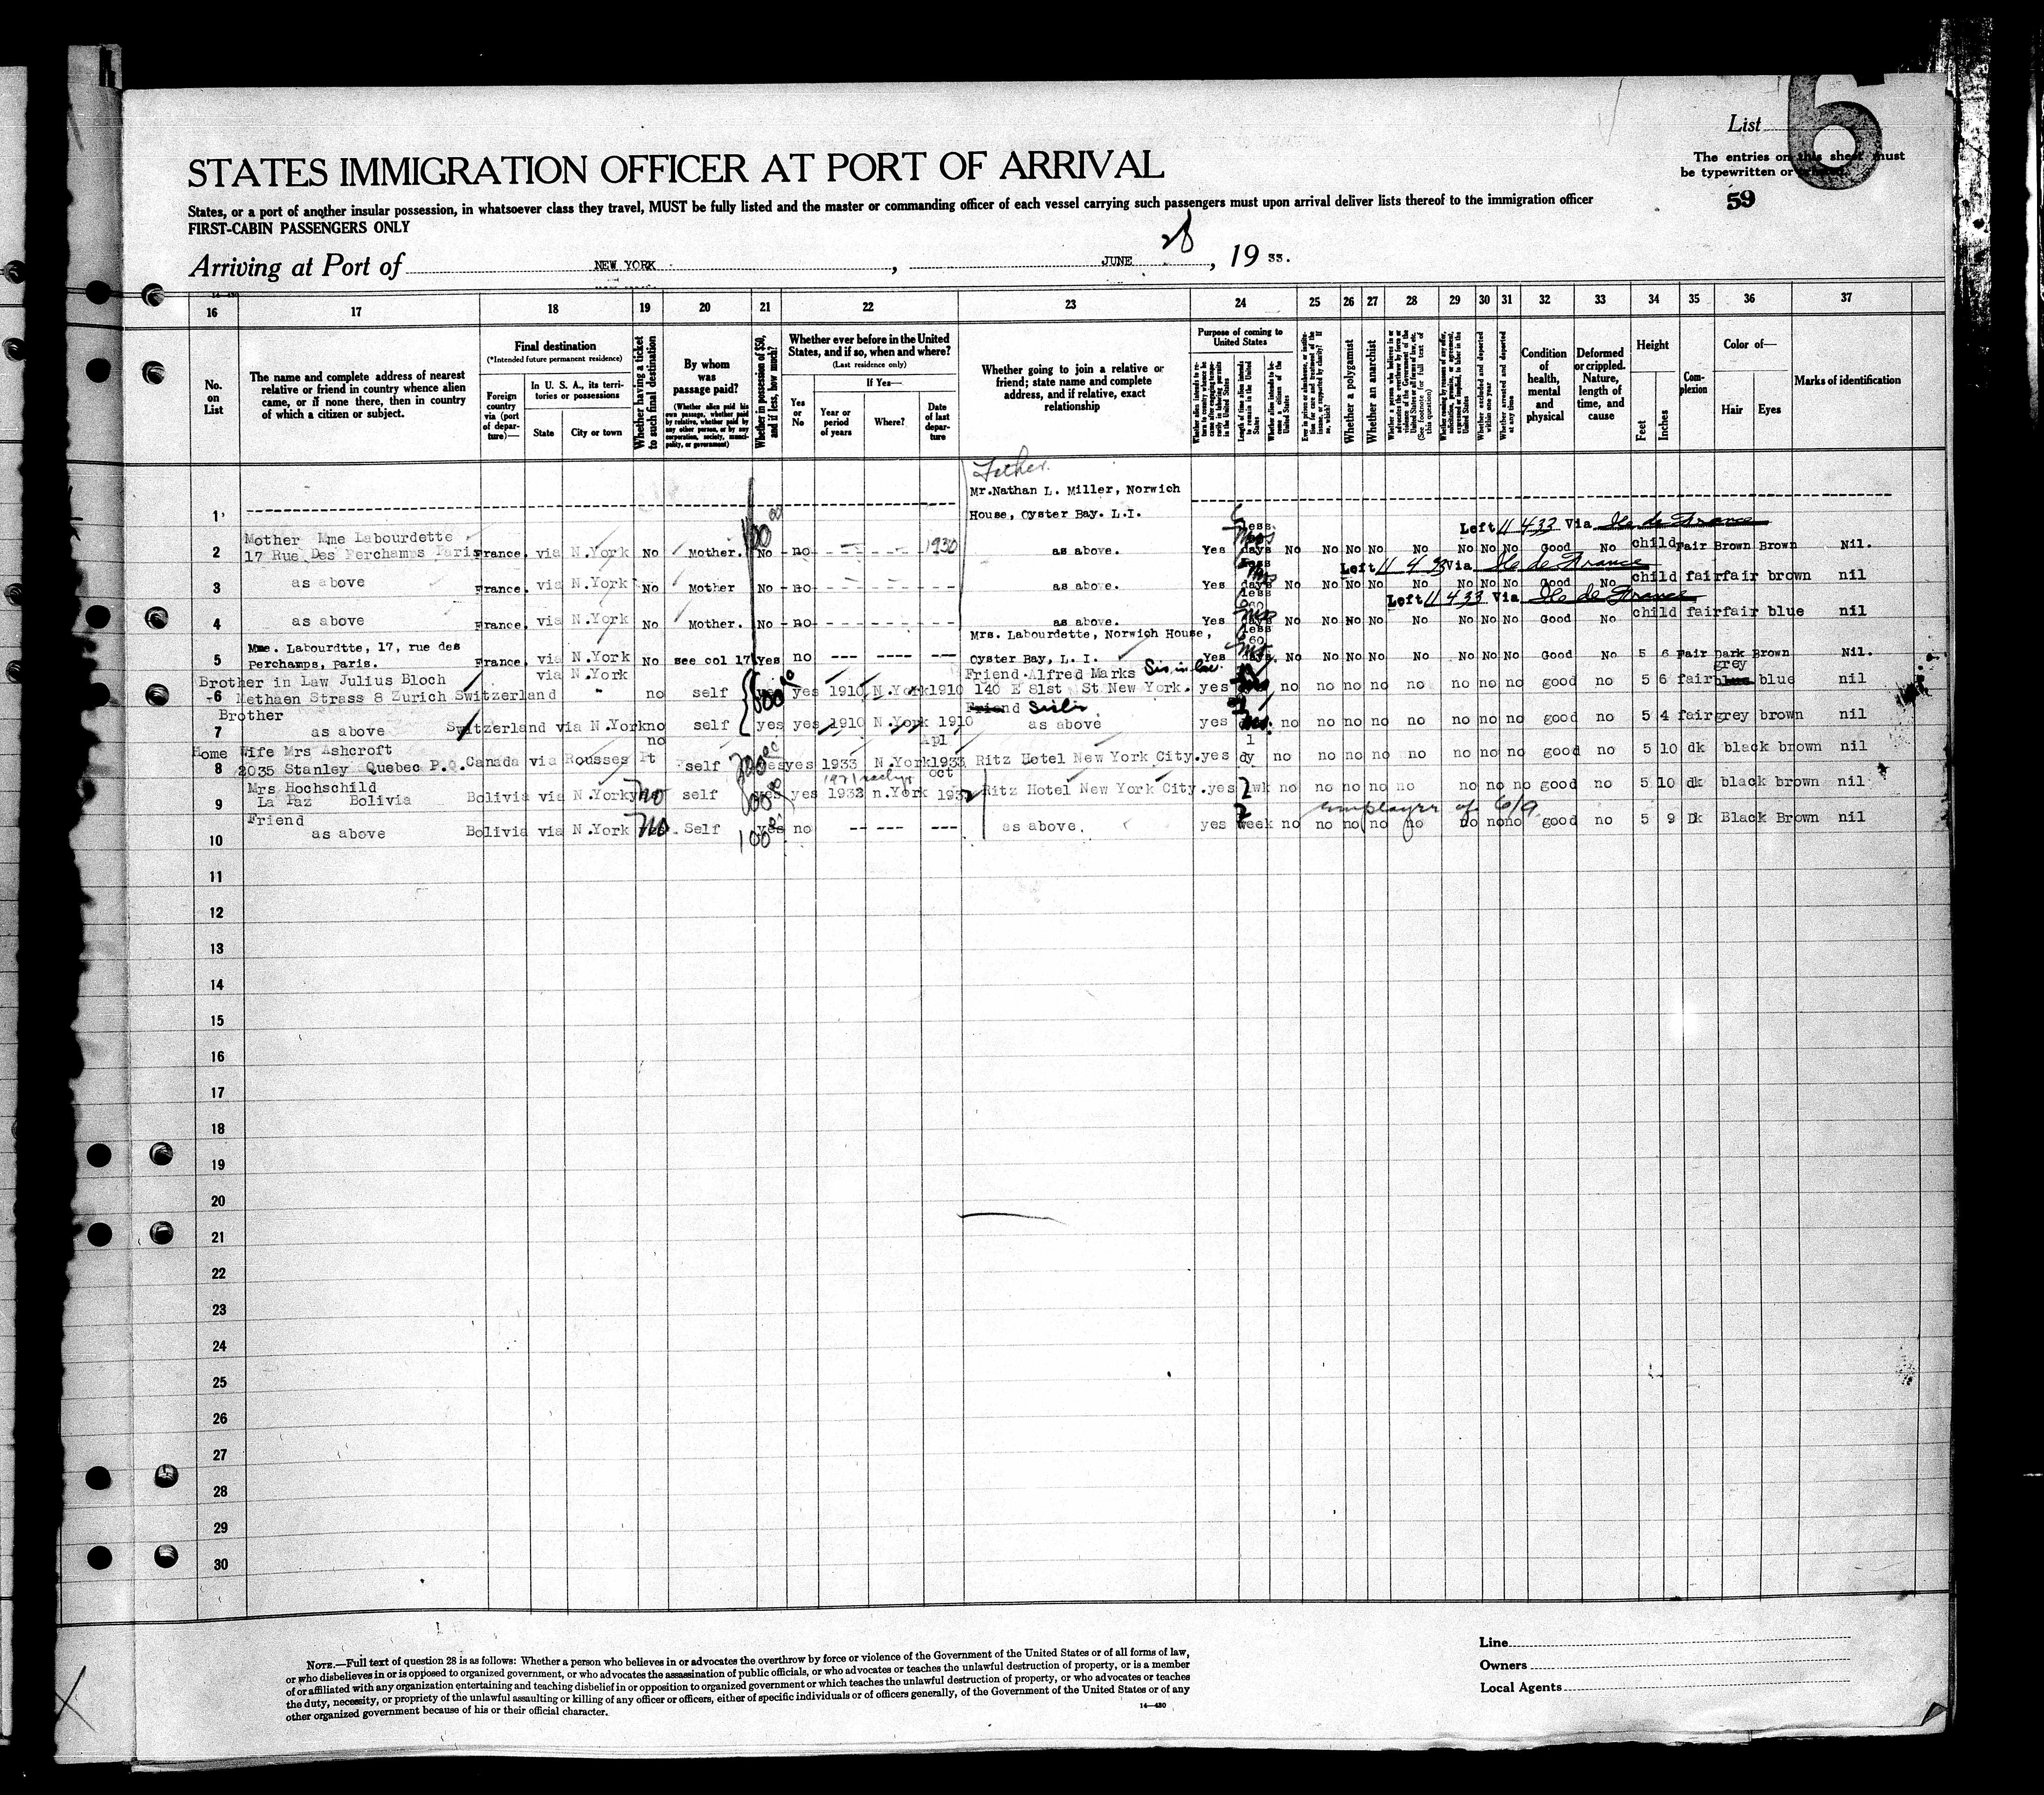 List 6
The entries on this sheet must
be typewritten or
59
STATES IMMIGRATION OFFICER AT PORT OF ARRIVAL
States, or a port of another insular possession, in whatsoever class they travel, MUST be fully listed and the master or commanding officer of each vessel carrying such passengers must upon arrival deliver lists thereof to the immigration officer
FIRST-CABIN PASSENGERS ONLY
Arriving at Port of NEW YORK, JUNE 28, 1933.
16 17 18 19 20 21 22 23 24 25 26 27 28 29 30 31 32 33 34 35 36 37
No. on List
The name and complete address of nearest relative or friend in country whence alien came, or if none there, then in country of which a citizen or subject.
Final destination
(*Intended future permanent residence)
Foreign country via (port of departure)—
In U. S. A., its territories or possessions
State
City or town
Whether having a ticket to such final destination
By whom was passage paid?
(Whether alien paid his own passage, whether paid by relative, whether paid by any other person, or by any corporation, society, municipality, or government)
Whether in possession of $50, and if less, how much?
Whether ever before in the United States, and if so, when and where?
(Last residence only)
Yes or No
If Yes—
Year or period of years
Where?
Date of last departure
Whether going to join a relative or friend; state name and complete address, and if relative, exact relationship
Purpose of coming to United States
Length of time alien intends to remain in the United States
Whether alien intends to become a citizen of the United States
Whether a polygamist
Whether an anarchist
(See footnote for full text of this question)
Whether excluded and deported within one year
Whether arrested and deported at any time
Condition of health, mental and physical
Deformed or crippled. Nature, length of time, and cause
Height
Feet
Inches
Complexion
Color of—
Hair
Eyes
Marks of identification
Father.
Mr.Nathan L. Miller, Norwich
1 House, Oyster Bay. L.I.
Left 11 4 33 Via Ile de France
Mother Mme Labourdette
2 17 Rue Des Perchamps Paris France. via N.York No Mother. No no 1930 as above. Yes days No No No No No No No No Good No child Fair Brown Brown Nil.
Left 11 4 33 Via Ile de France
3 as above France. via N.York No Mother No no as above. Yes days No No No No No No No No Good No child fair fair brown nil
Left 11 4 33 Via Ile de France
4 as above France. via N.York No Mother. No no as above. Yes days No No No No No No No No Good No child fair fair blue nil
Mme. Labourdtte, 17, rue des
Mrs. Labourdette, Norwich House,
5 Perchamps, Paris. France. via N.York No see col 17 Yes no --- --- --- Oyster Bay, L. I. Yes days. No No No No No No No No Good No 5 6 Fair Dark Brown Nil.
Brother in Law Julius Bloch via N.York Friend Alfred Marks Sis in law grey
6 Methaen Strass 8 Zurich Switzerland " no self yes yes 1910 N.York 1910 140 E 81st St New York. yes no no no no no no no no good no 5 6 fair blue blue nil
Brother Friend Sister
7 as above Switzerland via N.York no self yes yes 1910 N.York 1910 as above yes no no no no no no no no good no 5 4 fair grey brown nil
Home Wife Mrs Ashcroft no Apl 1
8 2035 Stanley Quebec P.Q. Canada via Rousses Pt self yes yes 1933 N.York 1933 Ritz Hotel New York City. yes dy no no no no no no no no good no 5 10 dk black brown nil
Mrs Hochschild oct
9 La Paz Bolivia Bolivia via N.York no self yes yes 1932 n.York 1932 Ritz Hotel New York City. yes 2 wk no no no no no no no good no 5 10 dk black brown nil
Friend employer of 6/9
10 as above Bolivia via N.York no Self yes 100 no -- --- --- as above. yes 2 week no no no no no no no no good no 5 9 Dk Black Brown nil
11
12
13
14
15
16
17
18
19
20
21
22
23
24
25
26
27
28
29
30
NOTE.—Full text of question 28 is as follows: Whether a person who believes in or advocates the overthrow by force or violence of the Government of the United States or of all forms of law,
or who disbelieves in or is opposed to organized government, or who advocates the assassination of public officials, or who advocates or teaches the unlawful destruction of property, or is a member
of or affiliated with any organization entertaining and teaching disbelief in or opposition to organized government or which teaches the unlawful destruction of property, or who advocates or teaches
the duty, necessity, or propriety of the unlawful assaulting or killing of any officer or officers, either of specific individuals or of officers generally, of the Government of the United States or of any
other organized government because of his or their official character.
14—430
Line
Owners
Local Agents